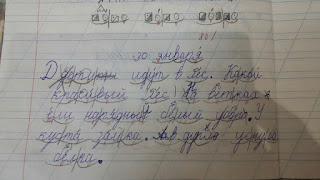 30 января
идут в лес. Какой
красивый лес! На ветках
ели нарядный белый убор. У
куста зайка. в дупле уснула
белка.